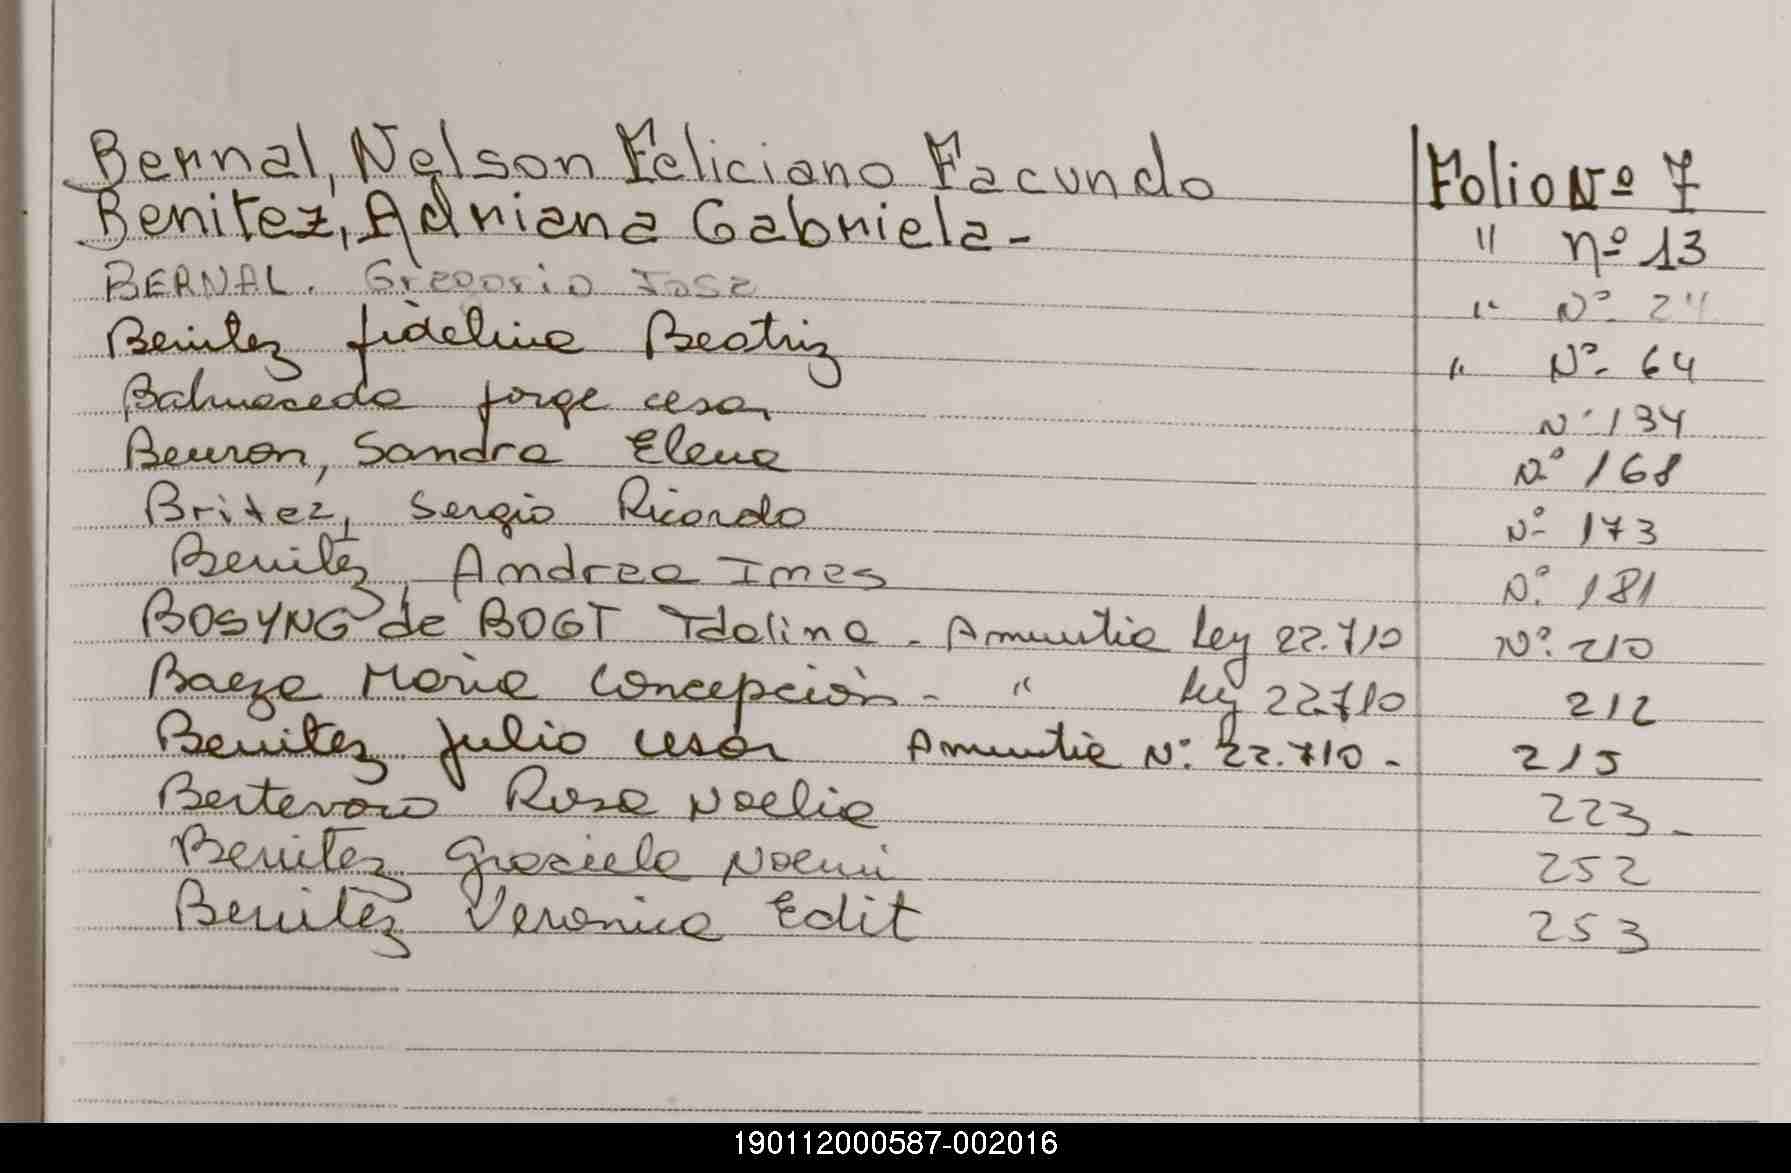 Bernal, Nelson Feliciano Facundo Folio Nº 7
Benitez, Adriana Gabriela - " nº 13
BERNAL. Gregorio Jose " Nº 24
Benitez fidelina Beatriz " Nº 64
Balmaceda Jorge cesar Nº 134
Beuron, Sandra Elena Nº 168
Britez, Sergio Ricardo Nº 173
Benitez, Andrea Ines Nº 181
BOSYNG de BOGT Idalina - Amnistia Ley 22.710 Nº 210
Baeza Maria Concepción - " Ley 22710 212
Benitez Julio cesar Amnistia Nº 22.710 - 215
Rosa Noelia 223 -
Benitez Graciela Noemi 252
Benitez Veronica Edit 253
190112000587-002016